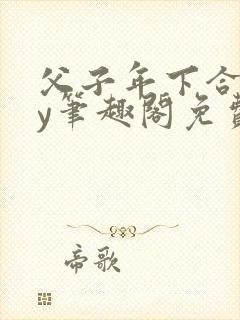 父子年下合
y筆趣閣免費
帝歌